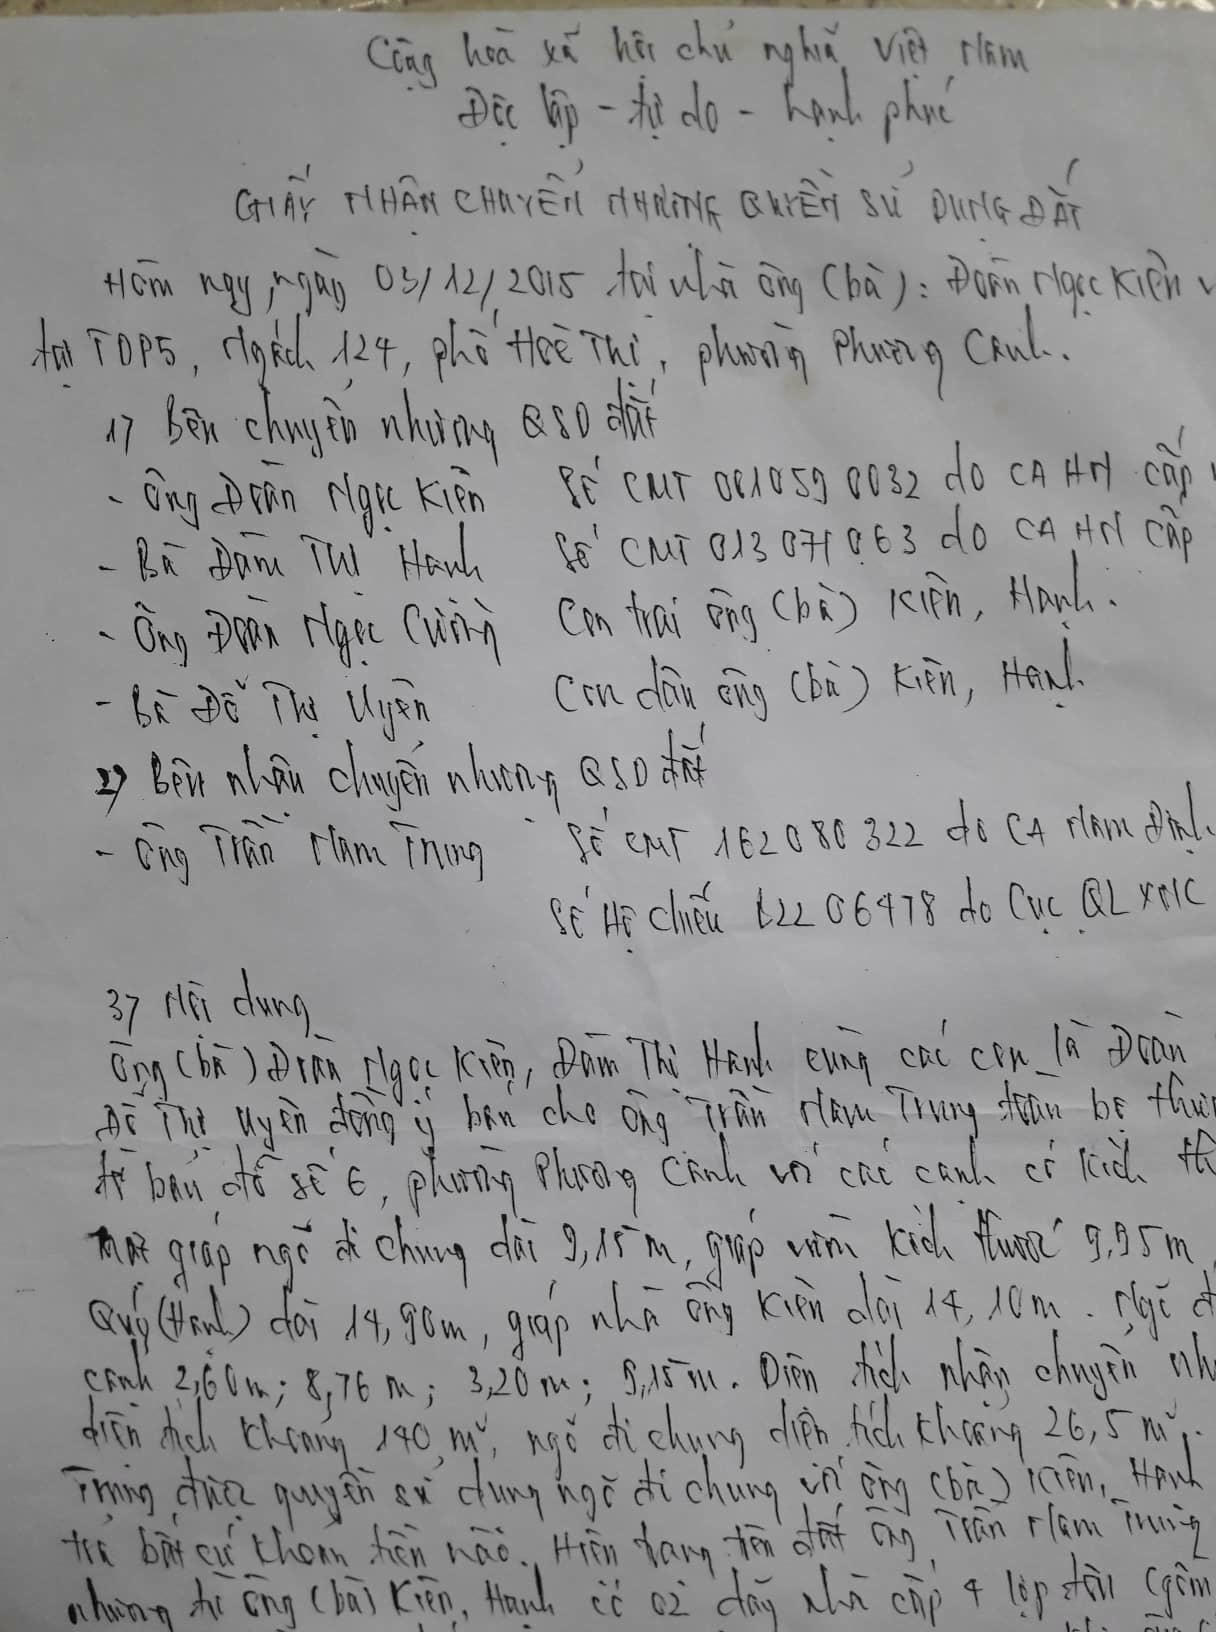 Cộng hoà xã hội chủ nghĩa Việt Nam
Độc lập - tự do - hạnh phúc
GIẤY NHẬN CHUYỂN NHƯỢNG QUYỀN SỬ DỤNG ĐẤT
Hôm nay, ngày 03/12/2015 tại nhà ông (bà): Đoàn Ngọc Kiên
tại TDP5, Ngách 124, phố Hoè Thị, phường Phương Canh.
1) Bên chuyển nhượng QSD đất
- Ông Đoàn Ngọc Kiên Số CMT 0010590032 do CA HN cấp
- Bà Đàm Thị Hạnh Số CMT 013071063 do CA HN cấp
- Ông Đoàn Ngọc Cường Con trai ông (bà) Kiên, Hạnh.
- Bà Đỗ Thị Uyên Con dâu ông (bà) Kiên, Hạnh
2) Bên nhận chuyển nhượng QSD đất
- Ông Trần Nam Trung Số CMT 162080322 do CA Nam Định
Số Hộ chiếu 2206478 do Cục QLXNC
3) Nội dung
Ông (bà) Đoàn Ngọc Kiên, Đàm Thị Hạnh cùng các con là Đoàn
Đỗ Thị Uyên đồng ý bán cho ông Trần Nam Trung toàn bộ
tờ bản đồ số 6, phường Phương Canh với các cạnh có kích
mặt giáp ngõ đi chung dài 9,15m, giáp vườn kích thước 9,95m
Quý (Hạnh) dài 14,90m, giáp nhà ông Kiên dài 14,10m. Ngõ
cạnh 2,60m; 8,76m; 3,20m; 9,15m. Diện tích nhận chuyển
diện tích khoảng 140 m², ngõ đi chung diện tích khoảng 26,5 m².
Trung được quyền sử dụng ngõ đi chung với ông (bà) Kiên, Hạnh
trả bất cứ khoản tiền nào. Hiện trạng trên đất ông Trần Nam Trung
nhượng từ ông (bà) Kiên, Hạnh có 02 dãy nhà cấp 4 lợp tôn (gồm